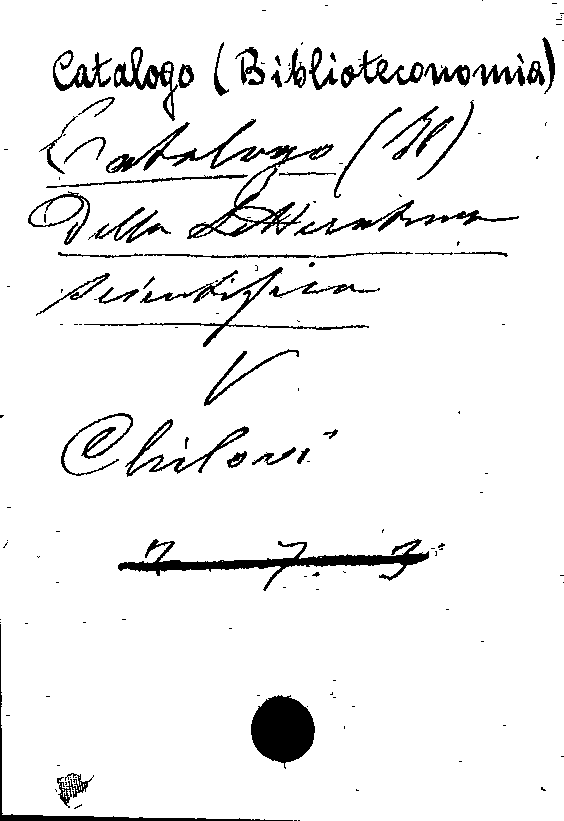 Catalogo (Biblioteconomia)
Catalogo (Il)
della Letteratura
scientifica
V
Chilovi
7 7. 3